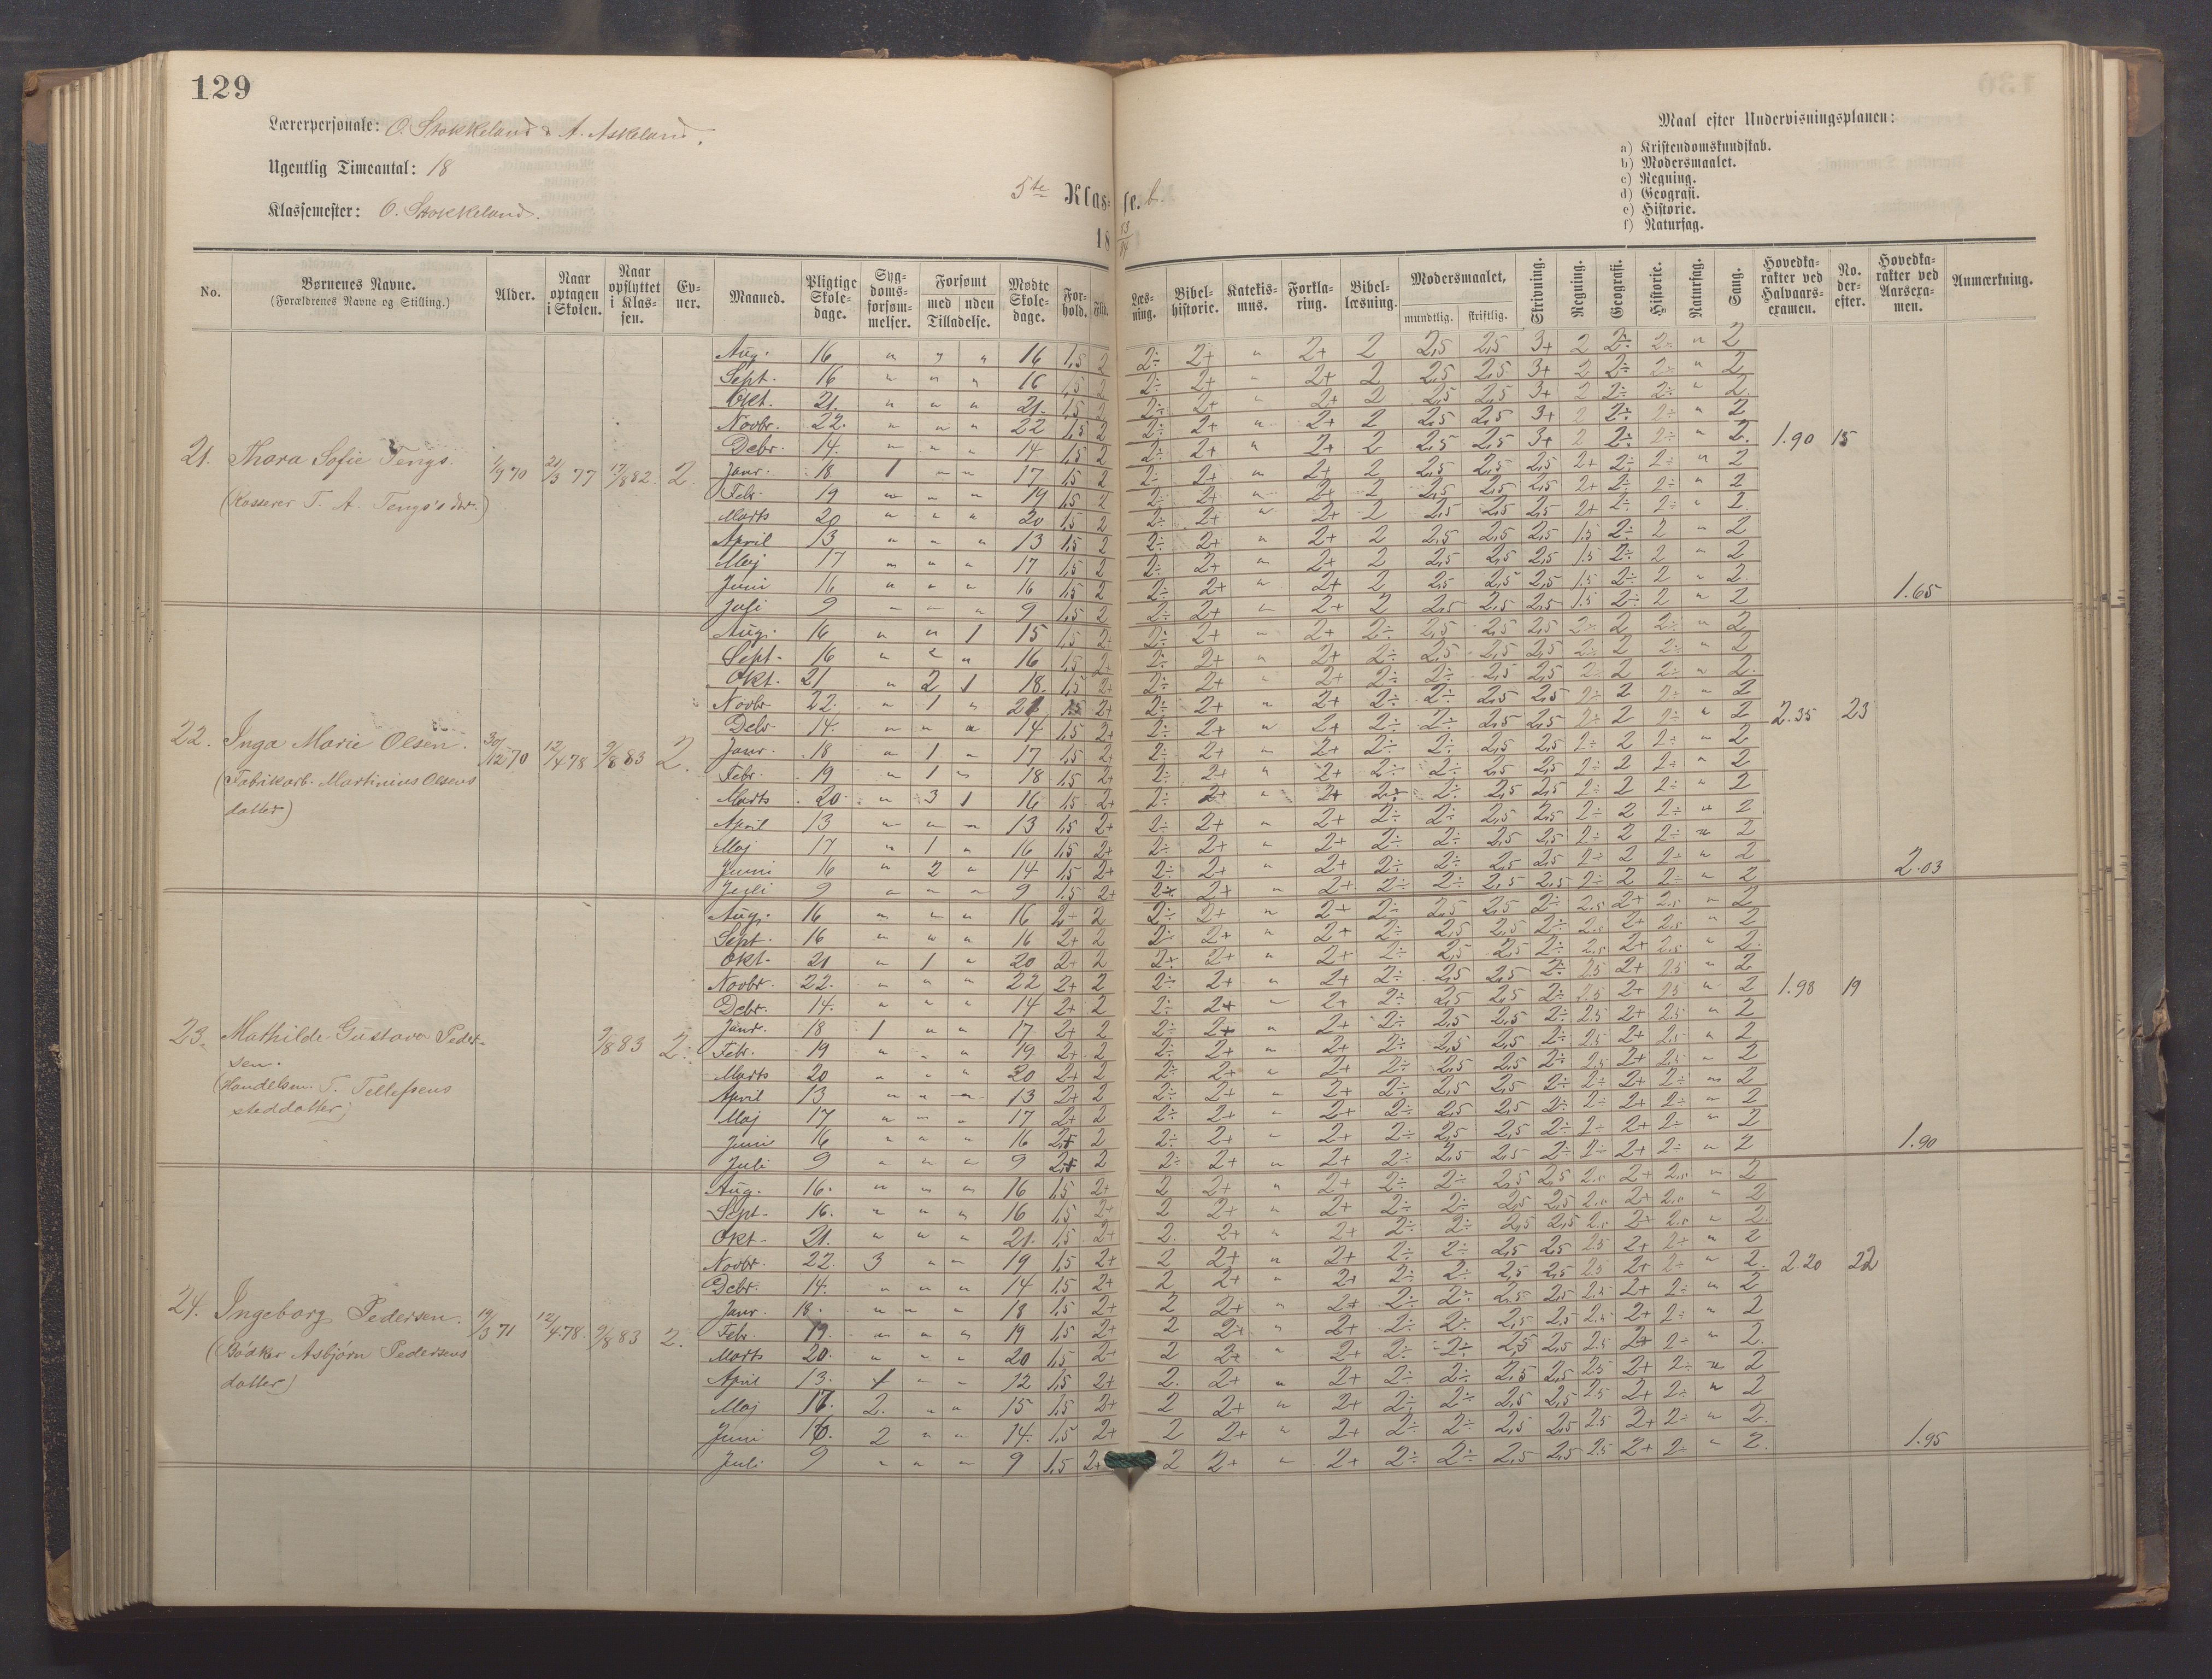 129
Lærerpersonale: O. Stokkeland & A. Askeland.
Ugentlig Timeantal: 18
Klassemester: O. Stokkeland.
5te Klasse. b.
18 83/84
Maal efter Undervisningsplanen:
a) Kristendomskundskab.
b) Modersmaalet.
c) Regning.
d) Geografi.
e) Historie.
f) Naturfag.
No. Børnenes Navne. (Forældrenes Navne og Stilling.) Alder. Naar optagen i Skolen. Naar opflyttet i Klassen. Evner. Maaned. Pligtige Skoledage. Sygdomsforsømmelser. Forsømt med uden Tilladelse. Mødte Skoledage. Forhold. Flid. Læsning. Bibelhistorie. Katekismus. Forklaring. Bibellæsning. Modersmaalet, mundtlig. skriftlig. Skrivning. Regning. Geografi. Historie. Naturfag. Sang. Hovedkarakter ved Halvaarsexamen. No. derefter. Hovedkarakter ved Aarsexamen. Anmærkning.
21. Thora Sofie Tengs. 1/9 70 21/3 77 17/8 82. 2.
(Kasserer T. A. Tengs's dtr.)
Aug. 16 " " " 16 1,5 2 2÷ 2+ " 2+ 2 2,5 2,5 3+ 2 2÷ 2÷ " 2
Sept. 16 " " " 16 1,5 2 2÷ 2+ " 2+ 2 2,5 2,5 3+ 2 2÷ 2÷ " 2
Okt. 21. " " " 21. 1,5 2 2÷ 2+ " 2+ 2 2,5 2,5 3+ 2 2÷ 2÷ " 2.
Novbr. 22. " " " 22 1,5 2 2÷ 2+ " 2+ 2 2,5 2,5 3+ 2 2÷ 2÷ " 2
Debr. 14. " " " 14 1,5 2 2÷ 2+ " 2+ 2 2,5 2,5 3+ 2 2÷ 2÷ " 2. 1.90 15
Janr. 18 1 " " 17 1,5 2 2÷ 2+ " 2+ 2 2,5 2,5 2,5 2+ 2÷ 2÷ " 2
Febr. 19 " " " 19 1,5 2 2÷ 2+ " 2+ 2 2,5 2,5 2,5 2+ 2÷ 2÷ " 2
Marts 20 " " " 20 1,5 2 2÷ 2+ " 2+ 2 2,5 2,5 2,5 2+ 2÷ 2÷ " 2
April 13 " " " 13 1,5 2 2÷ 2+ " 2+ 2 2,5 2,5 2,5 1.5 2÷ 2 " 2
Maj 17 " " " 17 1,5 2 2÷ 2+ " 2+ 2 2,5 2,5 2,5 1.5 2÷ 2 " 2
Juni 16 " " " 16 1,5 2 2÷ 2+ " 2+ 2 2,5 2,5 2,5 1.5 2÷ 2 " 2.
Juli 9 " " " 9 1,5 2 2÷ 2+ " 2+ 2 2,5 2,5 2,5 1.5 2÷ 2 " 2 1.65
22. Inga Marie Olsen. 30/12 70 12/4 78 9/8 83 2.
(Fabrikarb. Martinius Olsens
datter)
Aug. 16 " " 1 15 1,5 2+ 2÷ 2+ " 2+ 2÷ 2,5 2,5 2,5 2÷ 2 2÷ " 2
Sept. 16 " " " 16 1,5 2+ 2÷ 2+ " 2+ 2÷ 2,5 2,5 2,5 2÷ 2 2÷ " 2
Okt. 21 " 2 1 18. 1,5 2+ 2÷ 2+ " 2+ 2÷ 2÷ 2,5 2,5 2÷ 2 2÷ " 2.
Novbr. 22. " 1 " 21 1,5 2+ 2÷ 2+ " 2+ 2÷ 2÷ 2,5 2,5 2÷ 2 2÷ " 2
Debr. 14. " " " 14 1,5 2+ 2÷ 2+ " 2+ 2÷ 2÷ 2,5 2,5 2÷ 2 2÷ " 2 2.35 23
Janr. 18 " 1 " 17 1,5 2+ 2÷ 2+ " 2+ 2÷ 2÷ 2,5 2,5 2÷ 2 2÷ " 2
Febr. 19 " 1 " 18 1,5 2+ 2÷ 2+ " 2+ 2÷ 2÷ 2,5 2,5 2÷ 2 2÷ " 2
Marts 20 " 3 1 16 1,5 2+ 2÷ 2+ " 2+ 2÷ 2÷ 2,5 2,5 2÷ 2 2÷ " 2
April 13 " " " 13 1,5 2+ 2÷ 2+ " 2+ 2÷ 2÷ 2,5 2,5 2÷ 2 2÷ " 2
Maj 17 " 1 " 16 1,5 2+ 2÷ 2+ " 2+ 2÷ 2÷ 2,5 2,5 2÷ 2 2÷ " 2
Juni 16 " 2 " 14 1,5 2+ 2÷ 2+ " 2+ 2÷ 2÷ 2,5 2,5 2÷ 2 2÷ " 2
Juli 9 " " " 9 1.5 2+ 2÷ 2+ " 2+ 2÷ 2÷ 2,5 2,5 2÷ 2 2÷ " 2 2.03
23. Mathilde Gustava Peder-
sen. 9/8 83 2.
(Handelsm. T. Tellefsens
steddatter)
Aug. 16 " " " 16 2+ 2 2÷ 2+ " 2+ 2÷ 2,5 2,5 2÷ 2.5 2+ 2.5 " 2
Sept. 16 " " " 16 2+ 2 2÷ 2+ " 2+ 2÷ 2,5 2,5 2÷ 2.5 2+ 2.5 " 2
Okt. 21 " 1 " 20 2+ 2 2÷ 2+ " 2+ 2÷ 2,5 2,5 2÷ 2.5 2+ 2.5 " 2.
Novbr. 22. " " " 22 2+ 2 2÷ 2+ " 2+ 2÷ 2,5 2,5 2÷ 2.5 2+ 2.5 " 2
Debr. 14. " " " 14 2+ 2 2÷ 2+ " 2+ 2÷ 2,5 2,5 2÷ 2.5 2+ 2.5 " 2 1.98 19
Janr. 18 1 " " 17 2+ 2 2÷ 2+ " 2+ 2÷ 2,5 2,5 2÷ 2.5 2+ 2.5 " 2
Febr. 19 " " " 19 2+ 2 2÷ 2+ " 2+ 2÷ 2,5 2,5 2÷ 2.5 2+ 2.5 " 2
Marts 20 " " " 20 2+ 2 2÷ 2+ " 2+ 2÷ 2,5 2,5 2÷ 2.5 2+ 2.5 " 2
April 13 " " " 13 2+ 2 2÷ 2+ " 2+ 2÷ 2,5 2,5 2÷ 2÷ 2+ 2÷ " 2
Maj 17 " " " 17 2+ 2 2÷ 2+ " 2+ 2÷ 2,5 2,5 2÷ 2÷ 2+ 2÷ " 2
Juni 16 " " " 16 2+ 2 2÷ 2+ " 2+ 2÷ 2,5 2,5 2÷ 2÷ 2+ 2÷ " 2
Juli 9 " " " 9 2+ 2 2÷ 2+ " 2+ 2÷ 2,5 2,5 2÷ 2÷ 2+ 2÷ " 2 1.90
24. Ingeborg Pedersen. 19/3 71 12/4 78. 9/8 83 2.
(Bødker Asbjørn Pedersens
datter)
Aug. 16. " " " 16 1,5 2+ 2 2+ " 2+ 2÷ 2÷ 2,5 2,5 2.5 2+ 2.5 " 2
Sept. 16. " " " 16 1,5 2+ 2 2+ " 2+ 2÷ 2÷ 2,5 2,5 2.5 2+ 2.5 " 2
Okt. 21. " " " 21. 1,5 2+ 2. 2+ " 2+ 2÷ 2÷ 2,5 2,5 2.5 2+ 2.5 " 2.
Novbr. 22. 3 " " 19 1,5 2+ 2 2+ " 2+ 2÷ 2÷ 2,5 2,5 2.5 2+ 2÷ " 2
Debr. 14. " " " 14 1,5 2+ 2 2+ " 2+ 2÷ 2÷ 2,5 2,5 2.5 2+ 2÷ " 2. 2.20 22
Janr. 18. " " " 18 1,5 2+ 2 2+ " 2+ 2÷ 2÷ 2,5 2,5 2.5 2+ 2÷ " 2
Febr. 19. " " " 19 1,5 2+ 2 2+ " 2+ 2÷ 2÷ 2,5 2.5 2.5 2+ 2÷ " 2
Marts 20. " " " 20 1,5 2+ 2 2+ " 2+ 2÷ 2÷ 2,5 2,5 2.5 2+ 2÷ " 2.
April 13. 1 " " 12 1,5 2+ 2. 2+ " 2+ 2÷ 2÷ 2,5 2,5 2.5 2+ 2÷ " 2
Maj 17. 2. " " 15 1,5 2+ 2 2+ " 2+ 2÷ 2÷ 2,5 2,5 2.5 2+ 2÷ " 2
Juni 16. 2 " " 14. 1,5 2+ 2 2+ " 2+ 2÷ 2÷ 2,5 2,5 2.5 2+ 2÷ " 2.
Juli 9 " " " 9 1,5 2+ 2 2+ " 2+ 2÷ 2÷ 2,5 2,5 2.5 2+ 2÷ " 2. 1.95